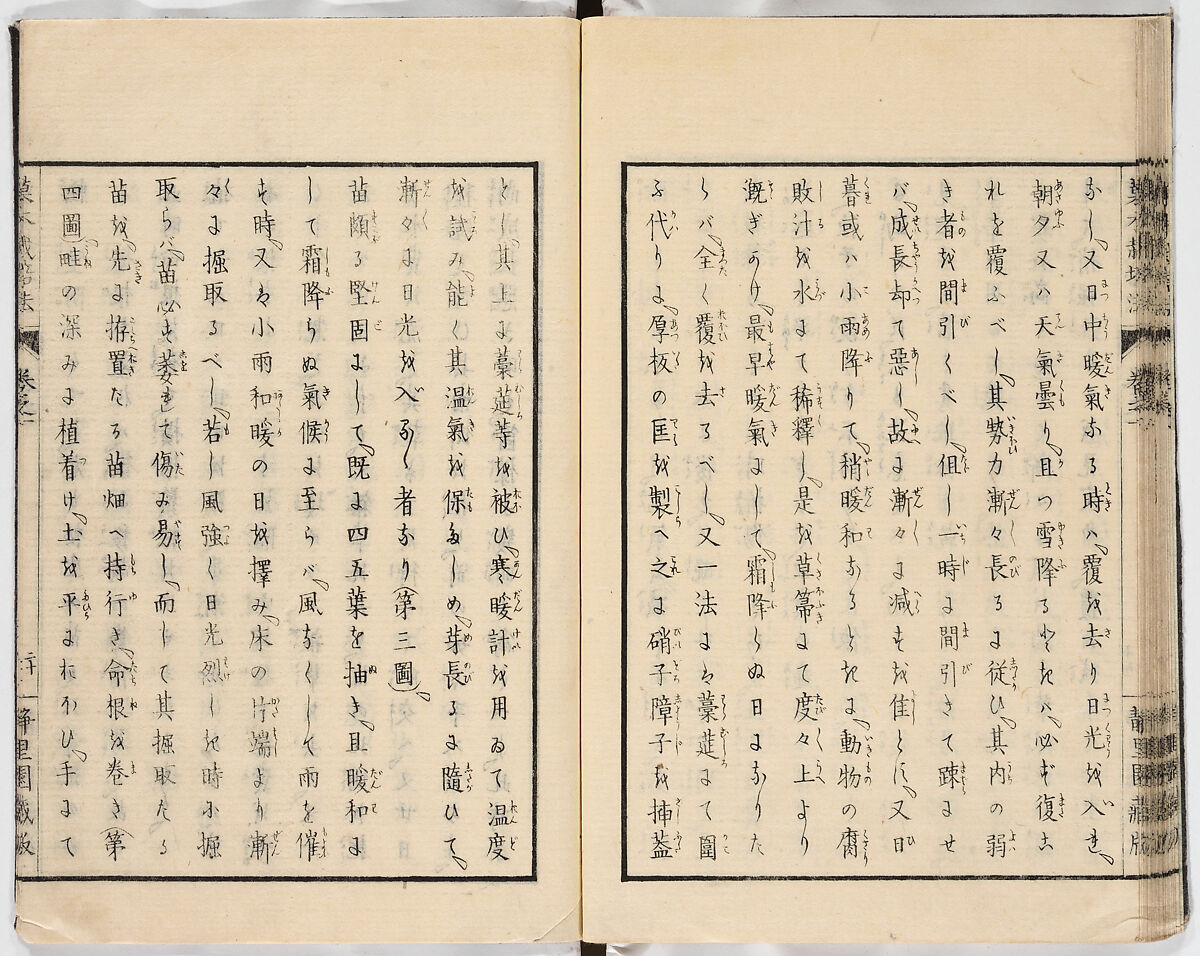 なし、又日中暖氣なる時ハ、覆を去り日光を入れ、
朝夕又ハ天氣曇り、且つ雪降るときハ、必ず復こ
れを覆ふべし、其勢力漸々長るに従ひ、其内の弱
き者を間引くべし、但し一時に間引きて疎にせ
バ、成長却て惡し、故に漸々に減ずを佳とす、又日
暮或ハ小雨降りて、稍暖和なるときに、動物の腐
敗汁を水にて稀釋し、是を草箒にて度々上より
漑ぎかけ、最早暖氣にして、霜降らぬ日になりた
らバ、全く覆を去るべし、又一法にハ藁莚にて圍
ふ代りに、厚板の匡を製へ之に硝子障子を挿蓋
とし、其上に藁莚等を被ひ、寒暖計を用ゐて温度
を試み、能く其温氣を保たしめ、芽長るに隨ひて、
漸々に日光を入るゝ者なり(第三圖)、
苗頗る堅固にして、既に四五葉を抽き、且暖和に
して霜降らぬ氣候に至らバ、風なくして雨を催
す時、又は小雨和暖の日を擇み、床の片端より漸
々に掘取るべし、若し風強く日光烈しき時に掘
取らバ、苗必ず萎れて傷み易し、而して其掘取たる
苗を、先に拵置たる苗畑へ持行き、命根を巻き(第
四圖)畦の深みに植着け、土を平におほひ、手にて
卷之一
靜里園藏版